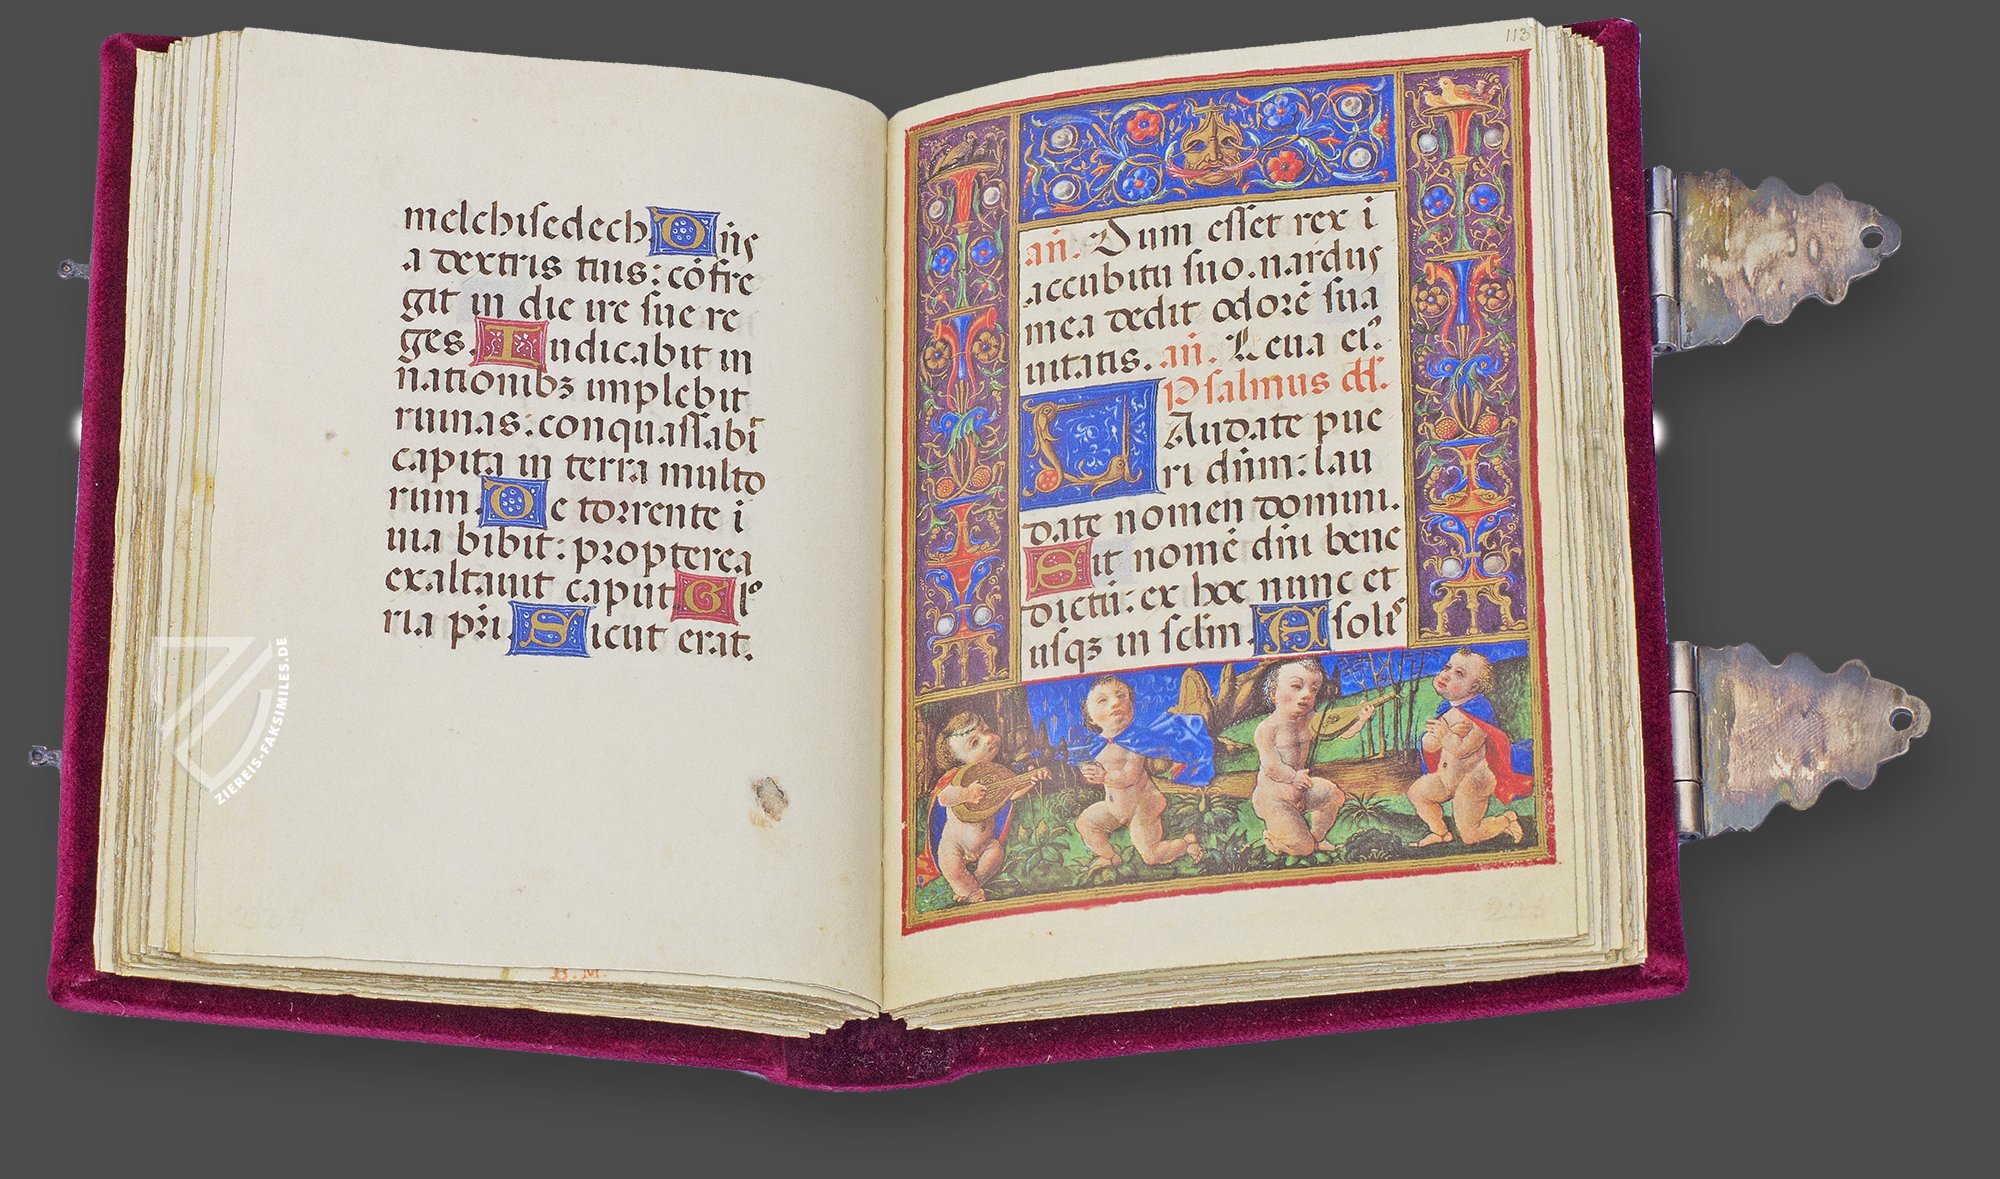 melchisedech. Dñs
a dextris tuis: cõfre
git in die ire sue re
ges. Iudicabit in
nationibꝫ implebit
ruinas: conquassabit
capita in terra multo
rum. De torrente i
uia bibit: propterea
exaltauit caput. Glo
ria pr̃i. Sicut erat.
B. M.
113
añ. Dum esset rex i
accubitu suo. nardus
mea dedit odorẽ sua
uitatis. añ. Leua eiꝰ.
Psalmus dd̃.
Laudate pue
ri dñm: lau
date nomen domini.
Sit nomẽ dñi bene
dictũ: ex hoc nunc et
usqꝫ in sclm̃. A solis
ZIEREIS-FAKSIMILES.DE